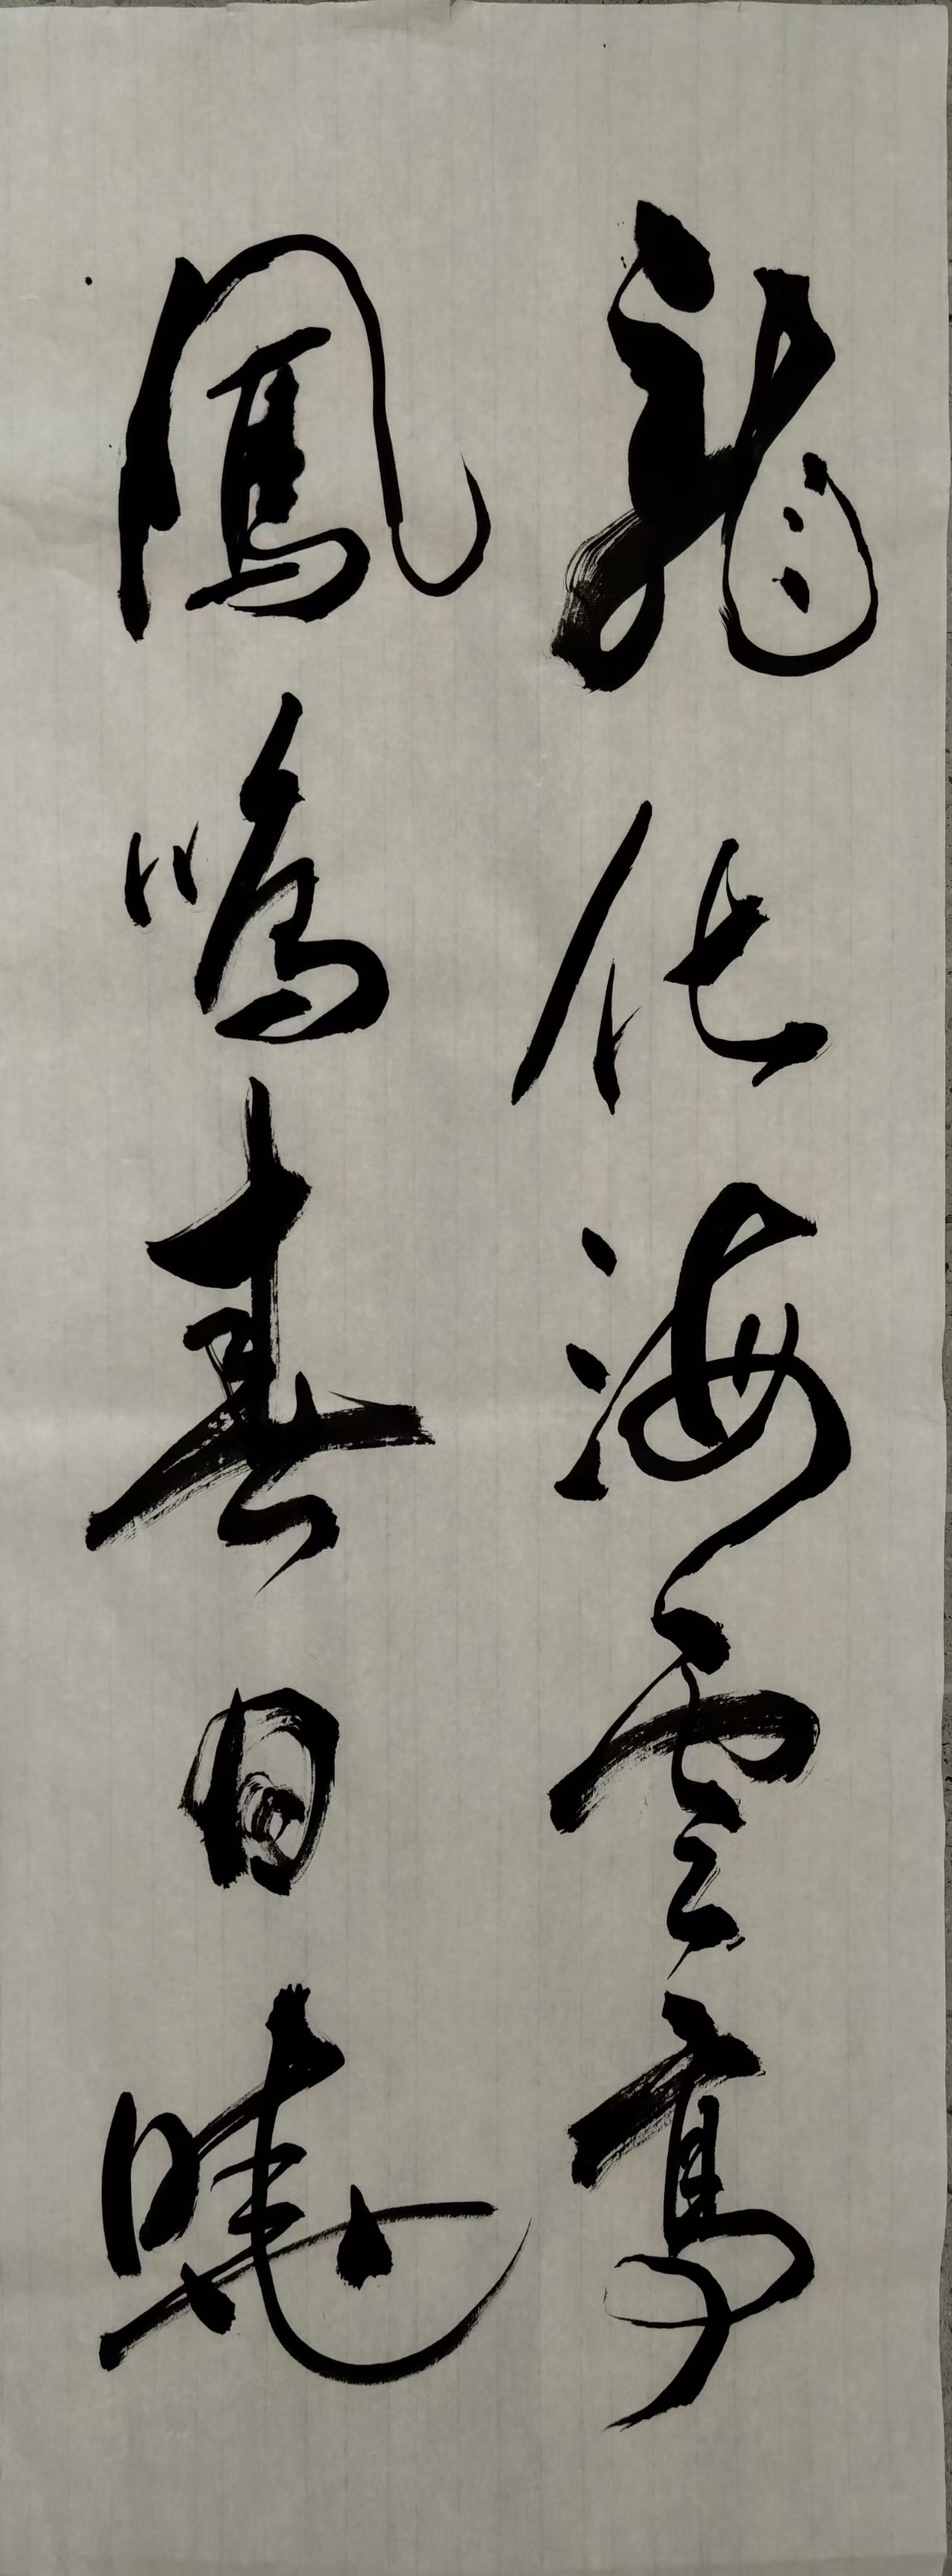 龍化海雲高
鳳鳴春日曉